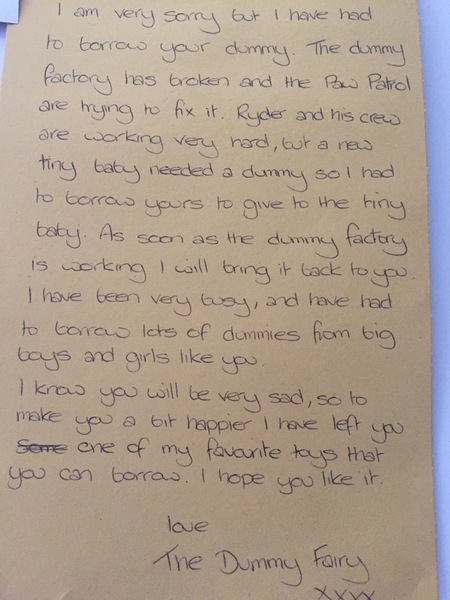 I am very sorry but I have had
to borrow your dummy. The dummy
factory has broken and the Paw Patrol
are trying to fix it. Ryder and his crew
are working very hard, but a new
tiny baby needed a dummy so I had
to borrow yours to give to the tiny
baby. As soon as the dummy factory
is working I will bring it back to you.
I have been very busy, and have had
to borrow lots of dummies from big
boys and girls like you.
I know you will be very sad, so to
make you a bit happier I have left you
some one of my favourite toys that
you can borrow. I hope you like it.
love
The Dummy Fairy
xxxx